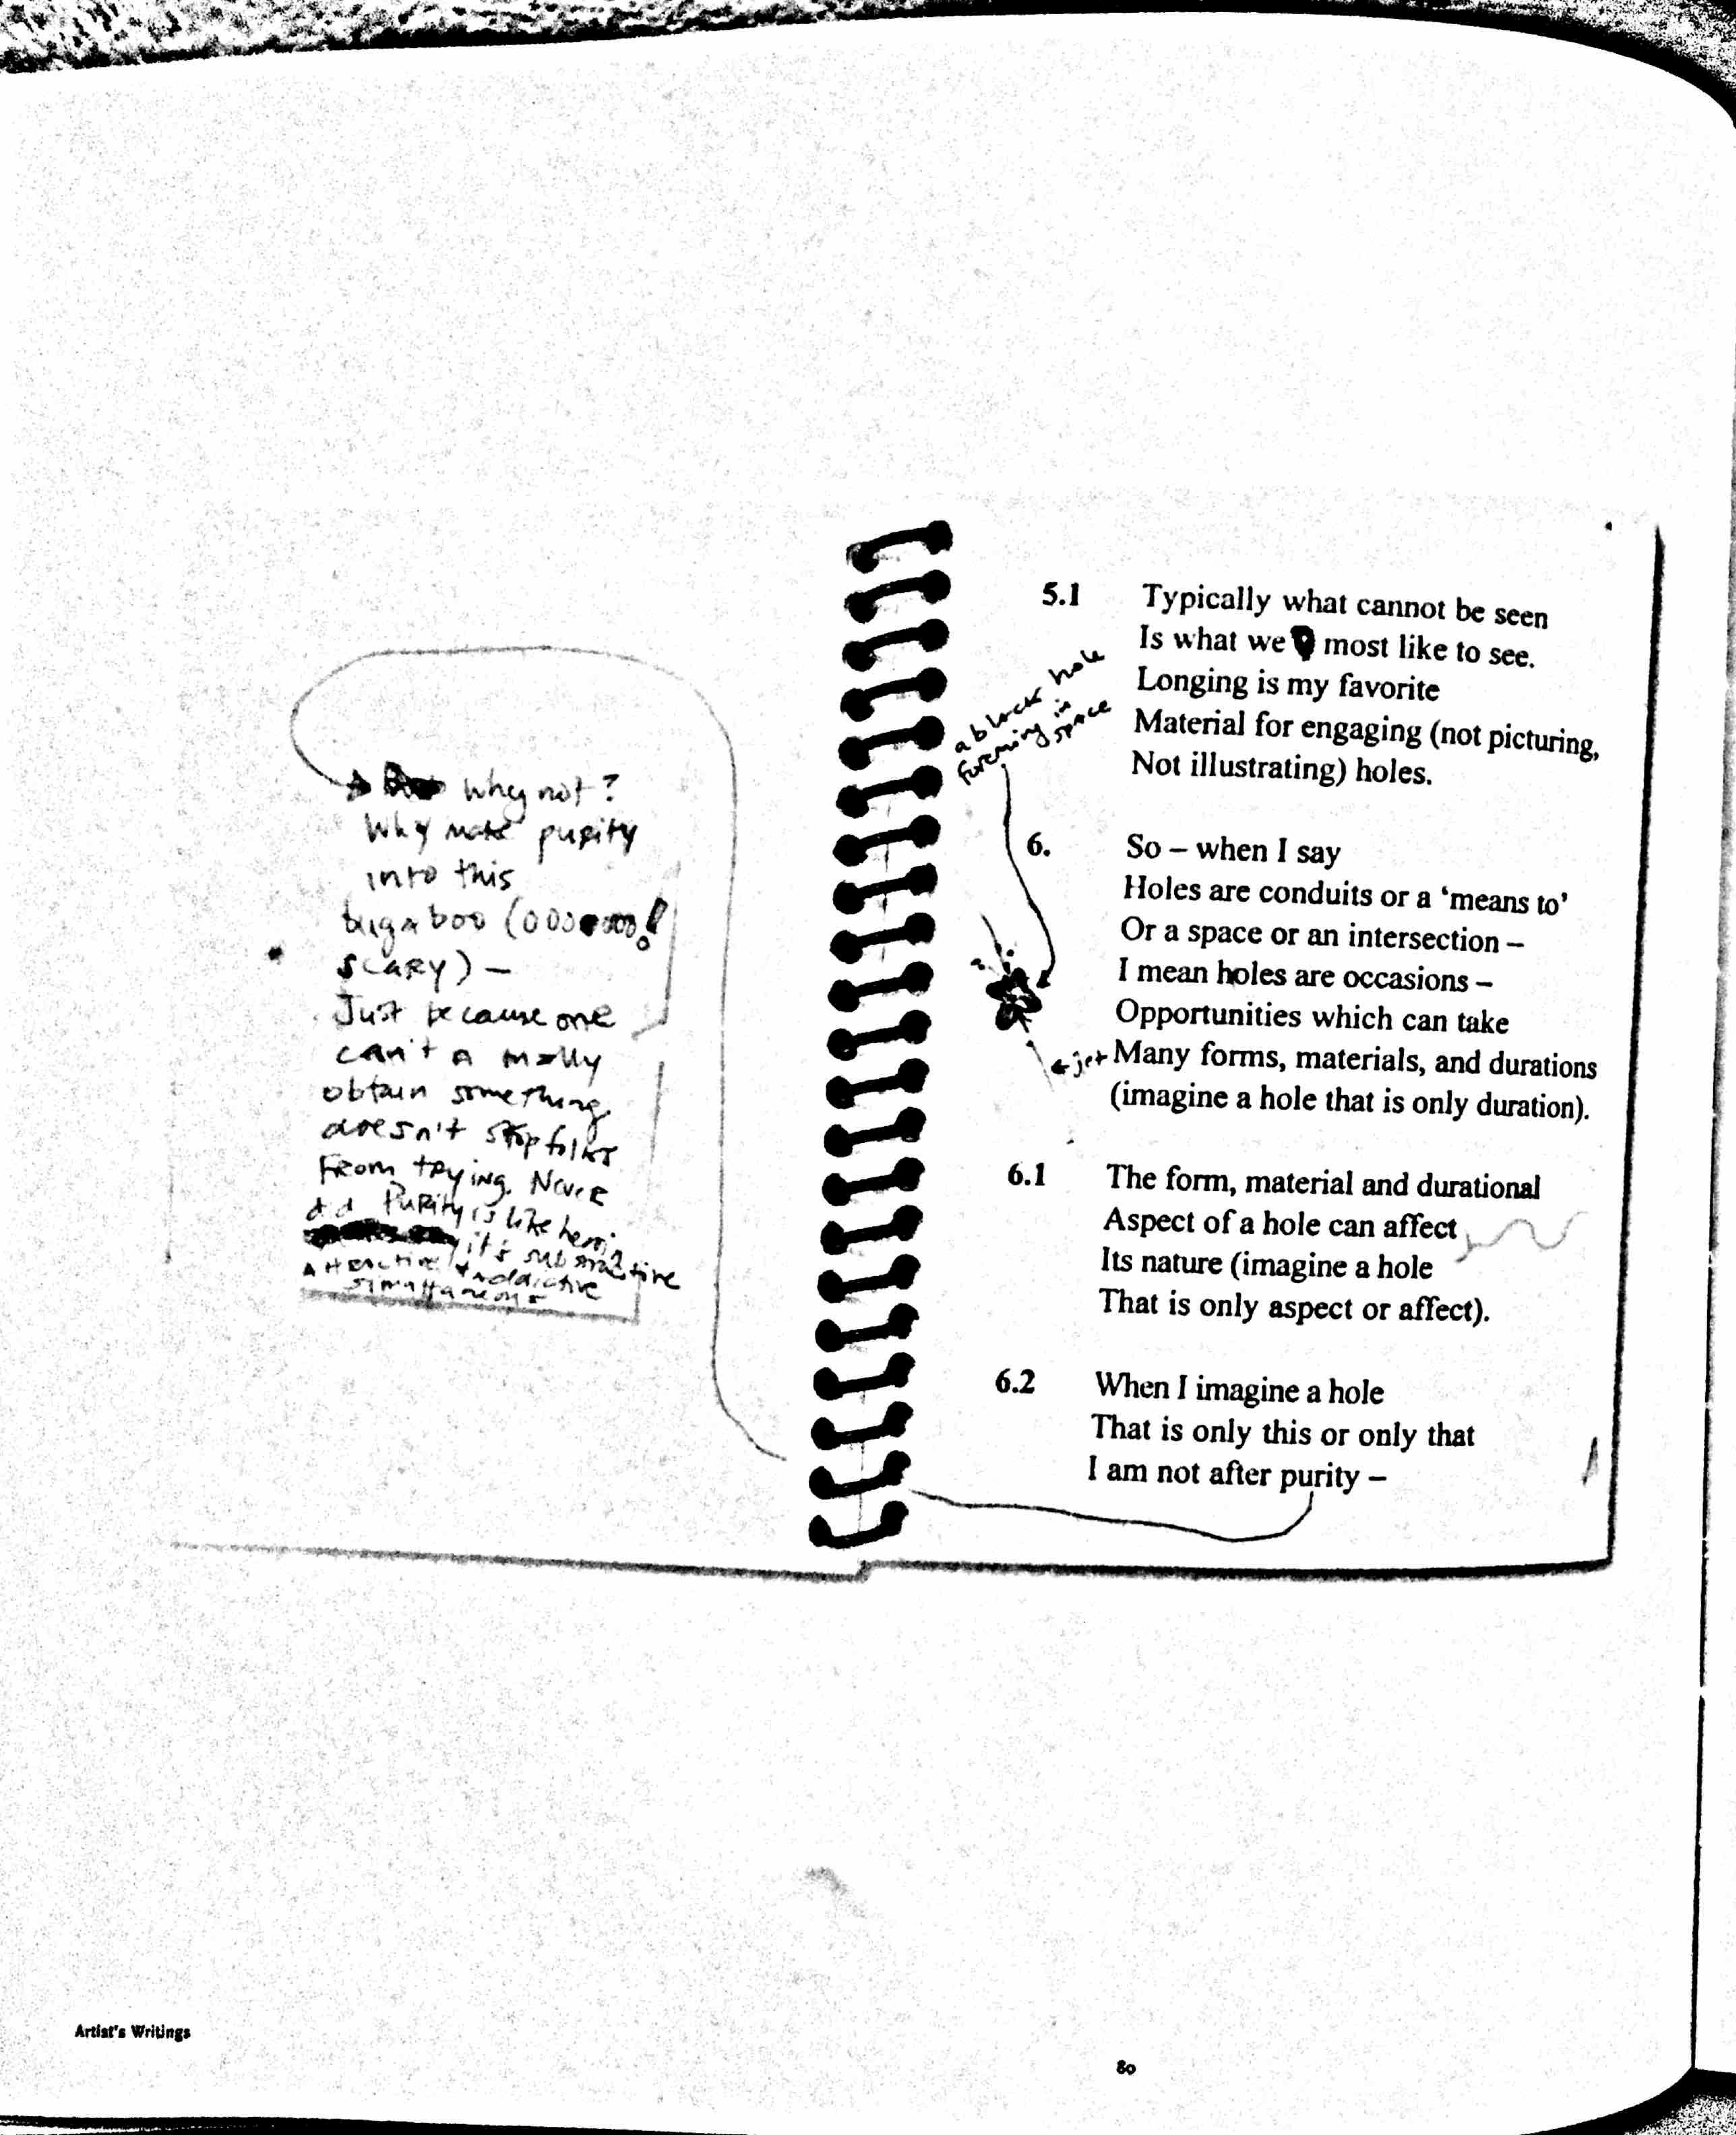 Why not?
Why make purity
into this
bugaboo (ooooooo!
scary) –
Just because one
can't a
obtain something
doesn't stop folks
from trying. Never
did. Purity is like heroin
it's substractive
attractive & addictive
simultaneous
a black hole
forming in
space
← jet
5.1 Typically what cannot be seen
Is what we most like to see.
Longing is my favorite
Material for engaging (not picturing,
Not illustrating) holes.
6. So – when I say
Holes are conduits or a ‘means to’
Or a space or an intersection –
I mean holes are occasions –
Opportunities which can take
Many forms, materials, and durations
(imagine a hole that is only duration).
6.1 The form, material and durational
Aspect of a hole can affect
Its nature (imagine a hole
That is only aspect or affect).
6.2 When I imagine a hole
That is only this or only that
I am not after purity –
Artist's Writings
80